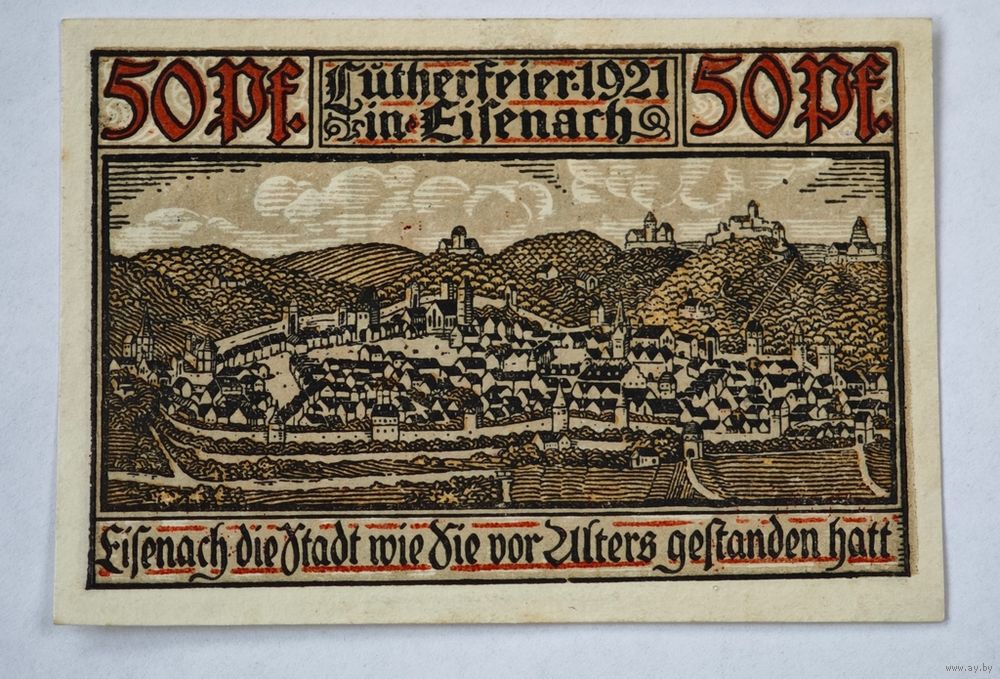 50 Pf.
Lutherfeier·1921
in Eisenach
50 Pf.
Eisenach die Stadt wie Sie vor Alters gestanden hatt
www.ay.by